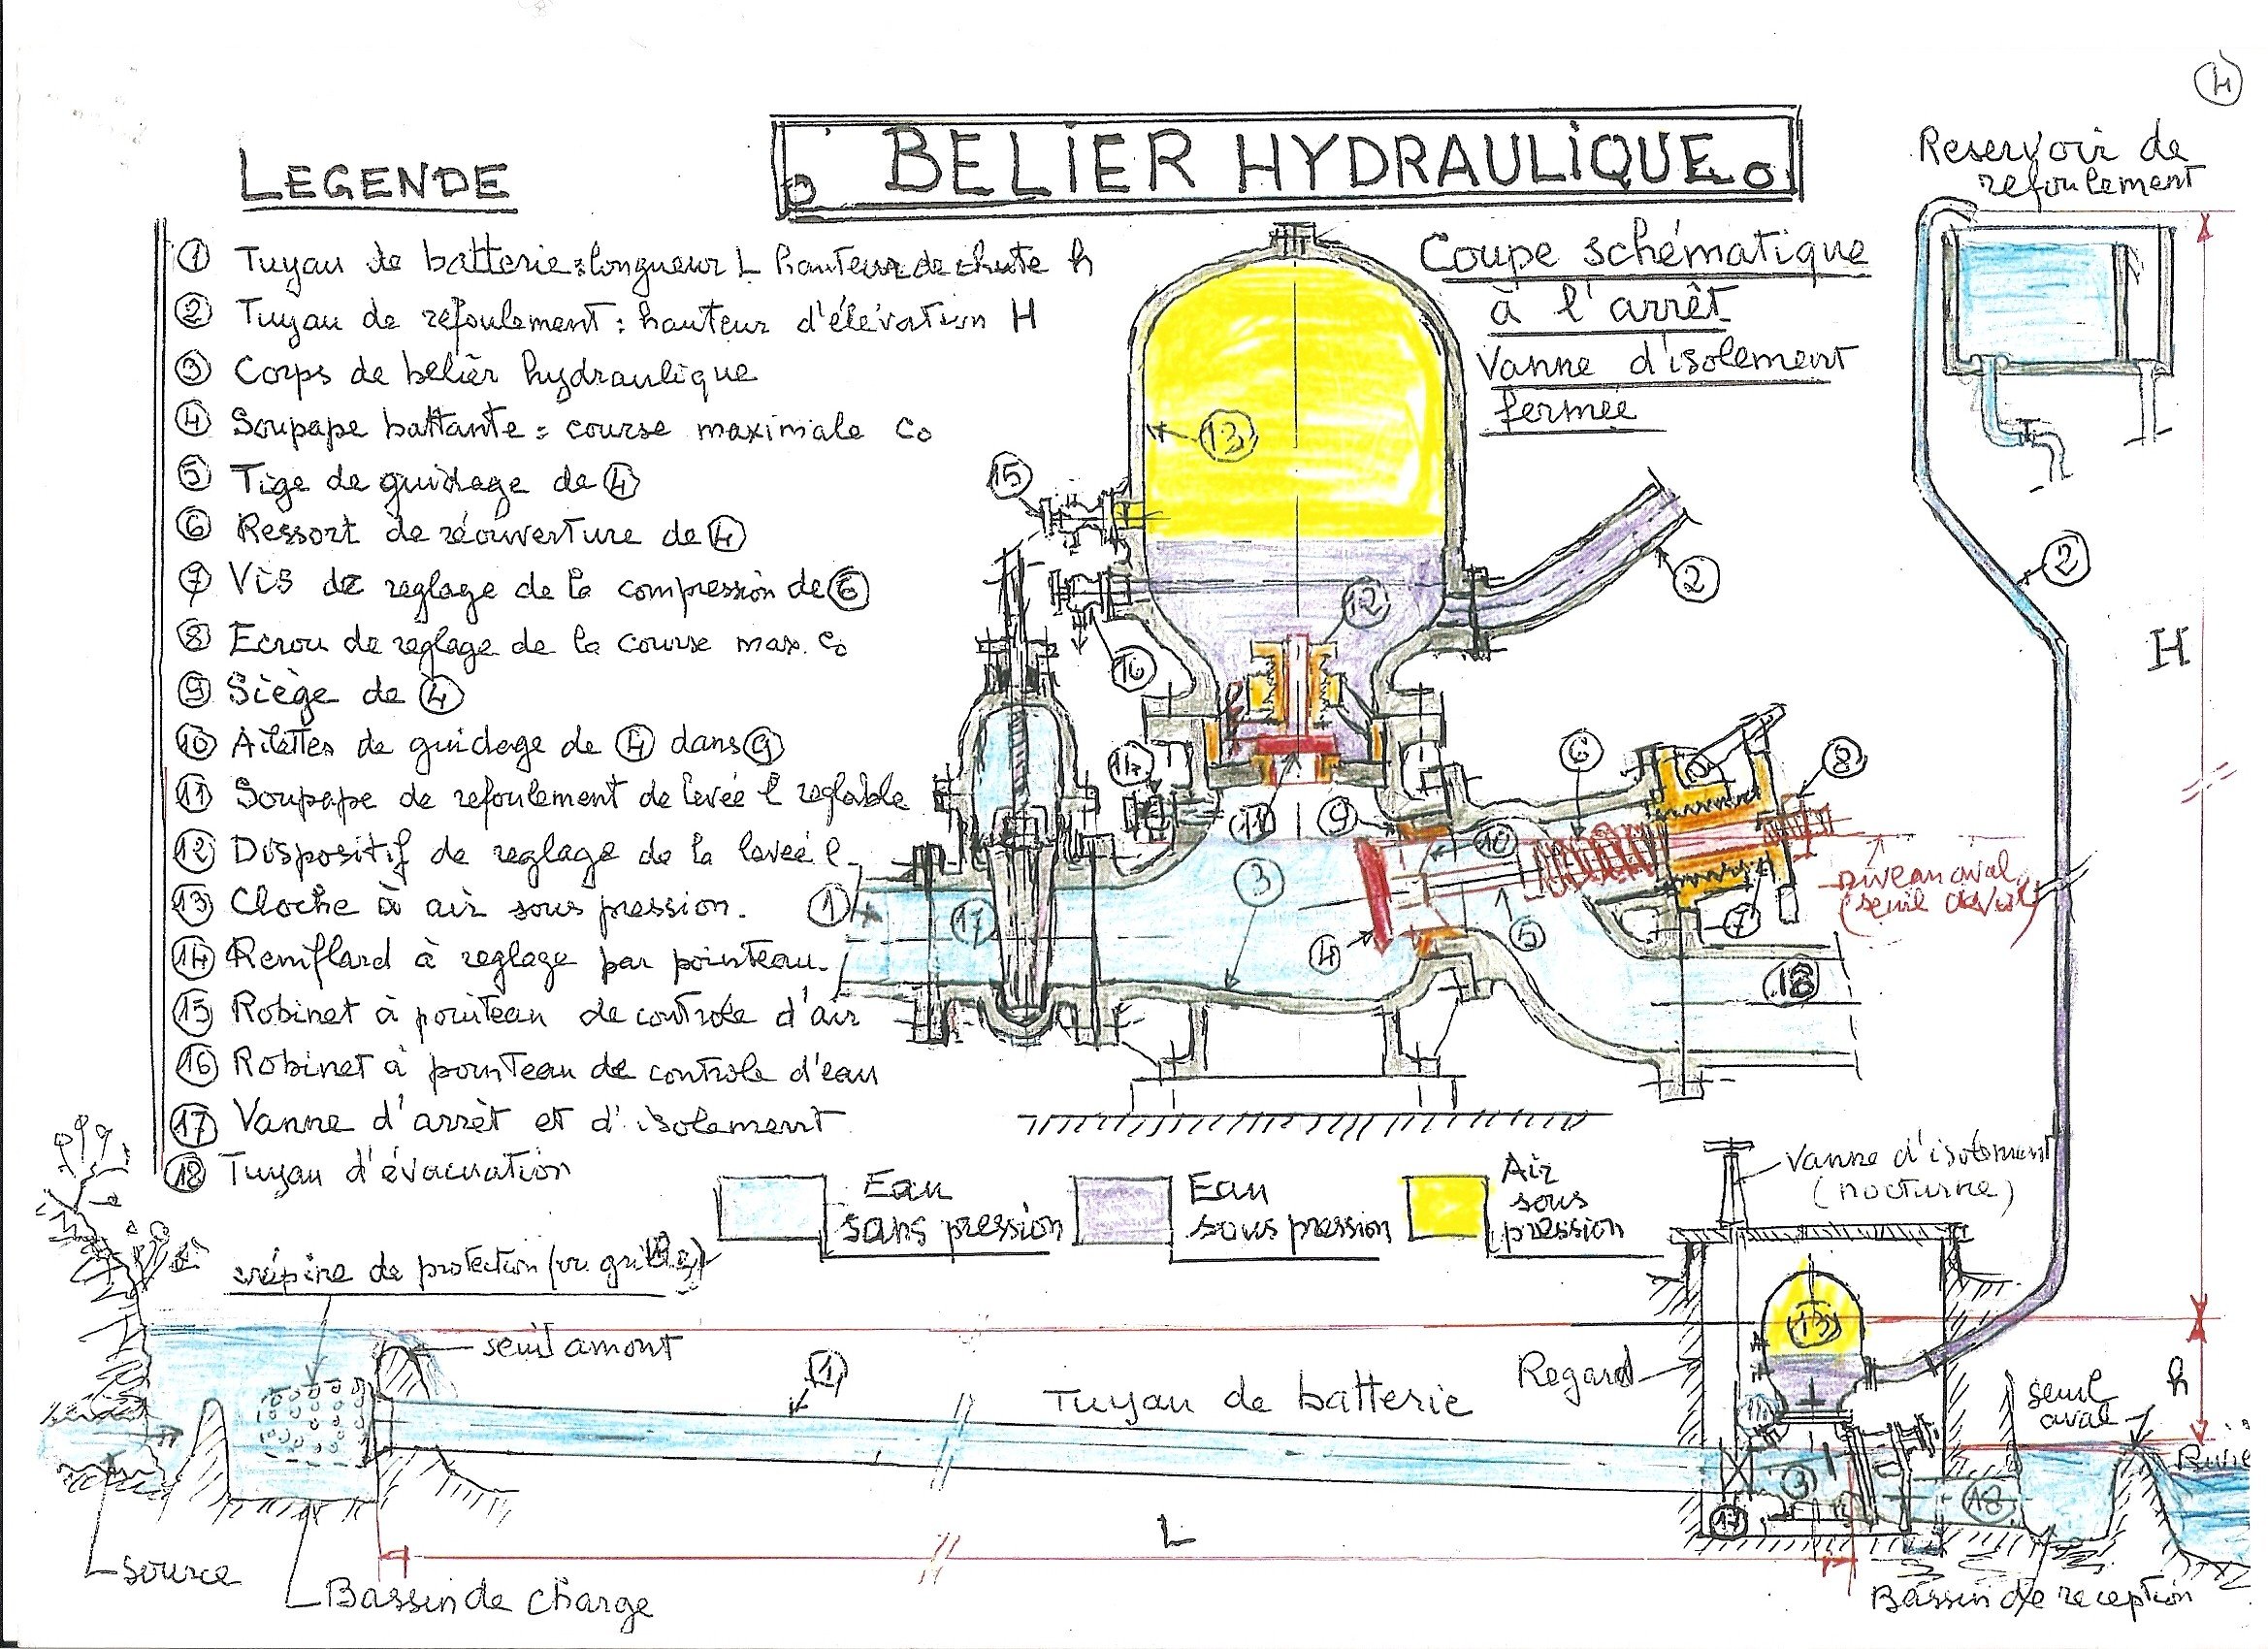 4
BELIER HYDRAULIQUE
LEGENDE
1 Tuyau de batterie: longueur L hauteur de chute h
2 Tuyau de refoulement: hauteur d'élévation H
3 Corps de belier hydraulique
4 Soupape battante: course maximale Co
5 Tige de guidage de 4
6 Ressort de réouverture de 4
7 Vis de reglage de la compression de 6
8 Ecrou de reglage de la course max. Co
9 Siège de 4
10 Ailettes de guidage de 4 dans 9
11 Soupape de refoulement de levée l reglable
12 Dispositif de reglage de la levée l
13 Cloche à air sous pression.
14 Reniflard à reglage par pointeau.
15 Robinet à pointeau de controle d'air
16 Robinet à pointeau de controle d'eau
17 Vanne d'arrêt et d'isolement
18 Tuyau d'évacuation
Coupe schématique
à l'arrêt
Vanne d'isolement
fermée
Reservoir de
refoulement
13
15
2
12
16
2
H
14
6
8
11
9
10
3
1
17
niveau aval
(seuil aval)
7
5
4
18
Eau
sans pression
Eau
sous pression
Air
sous
pression
Vanne d'isolement
(nocturne)
crépine de protection (ou grille)
seuil amont
1
Tuyau de batterie
Regard
13
h
seuil
aval
Riviè
14
3
18
17
L
source
Bassin de charge
Bassin de reception